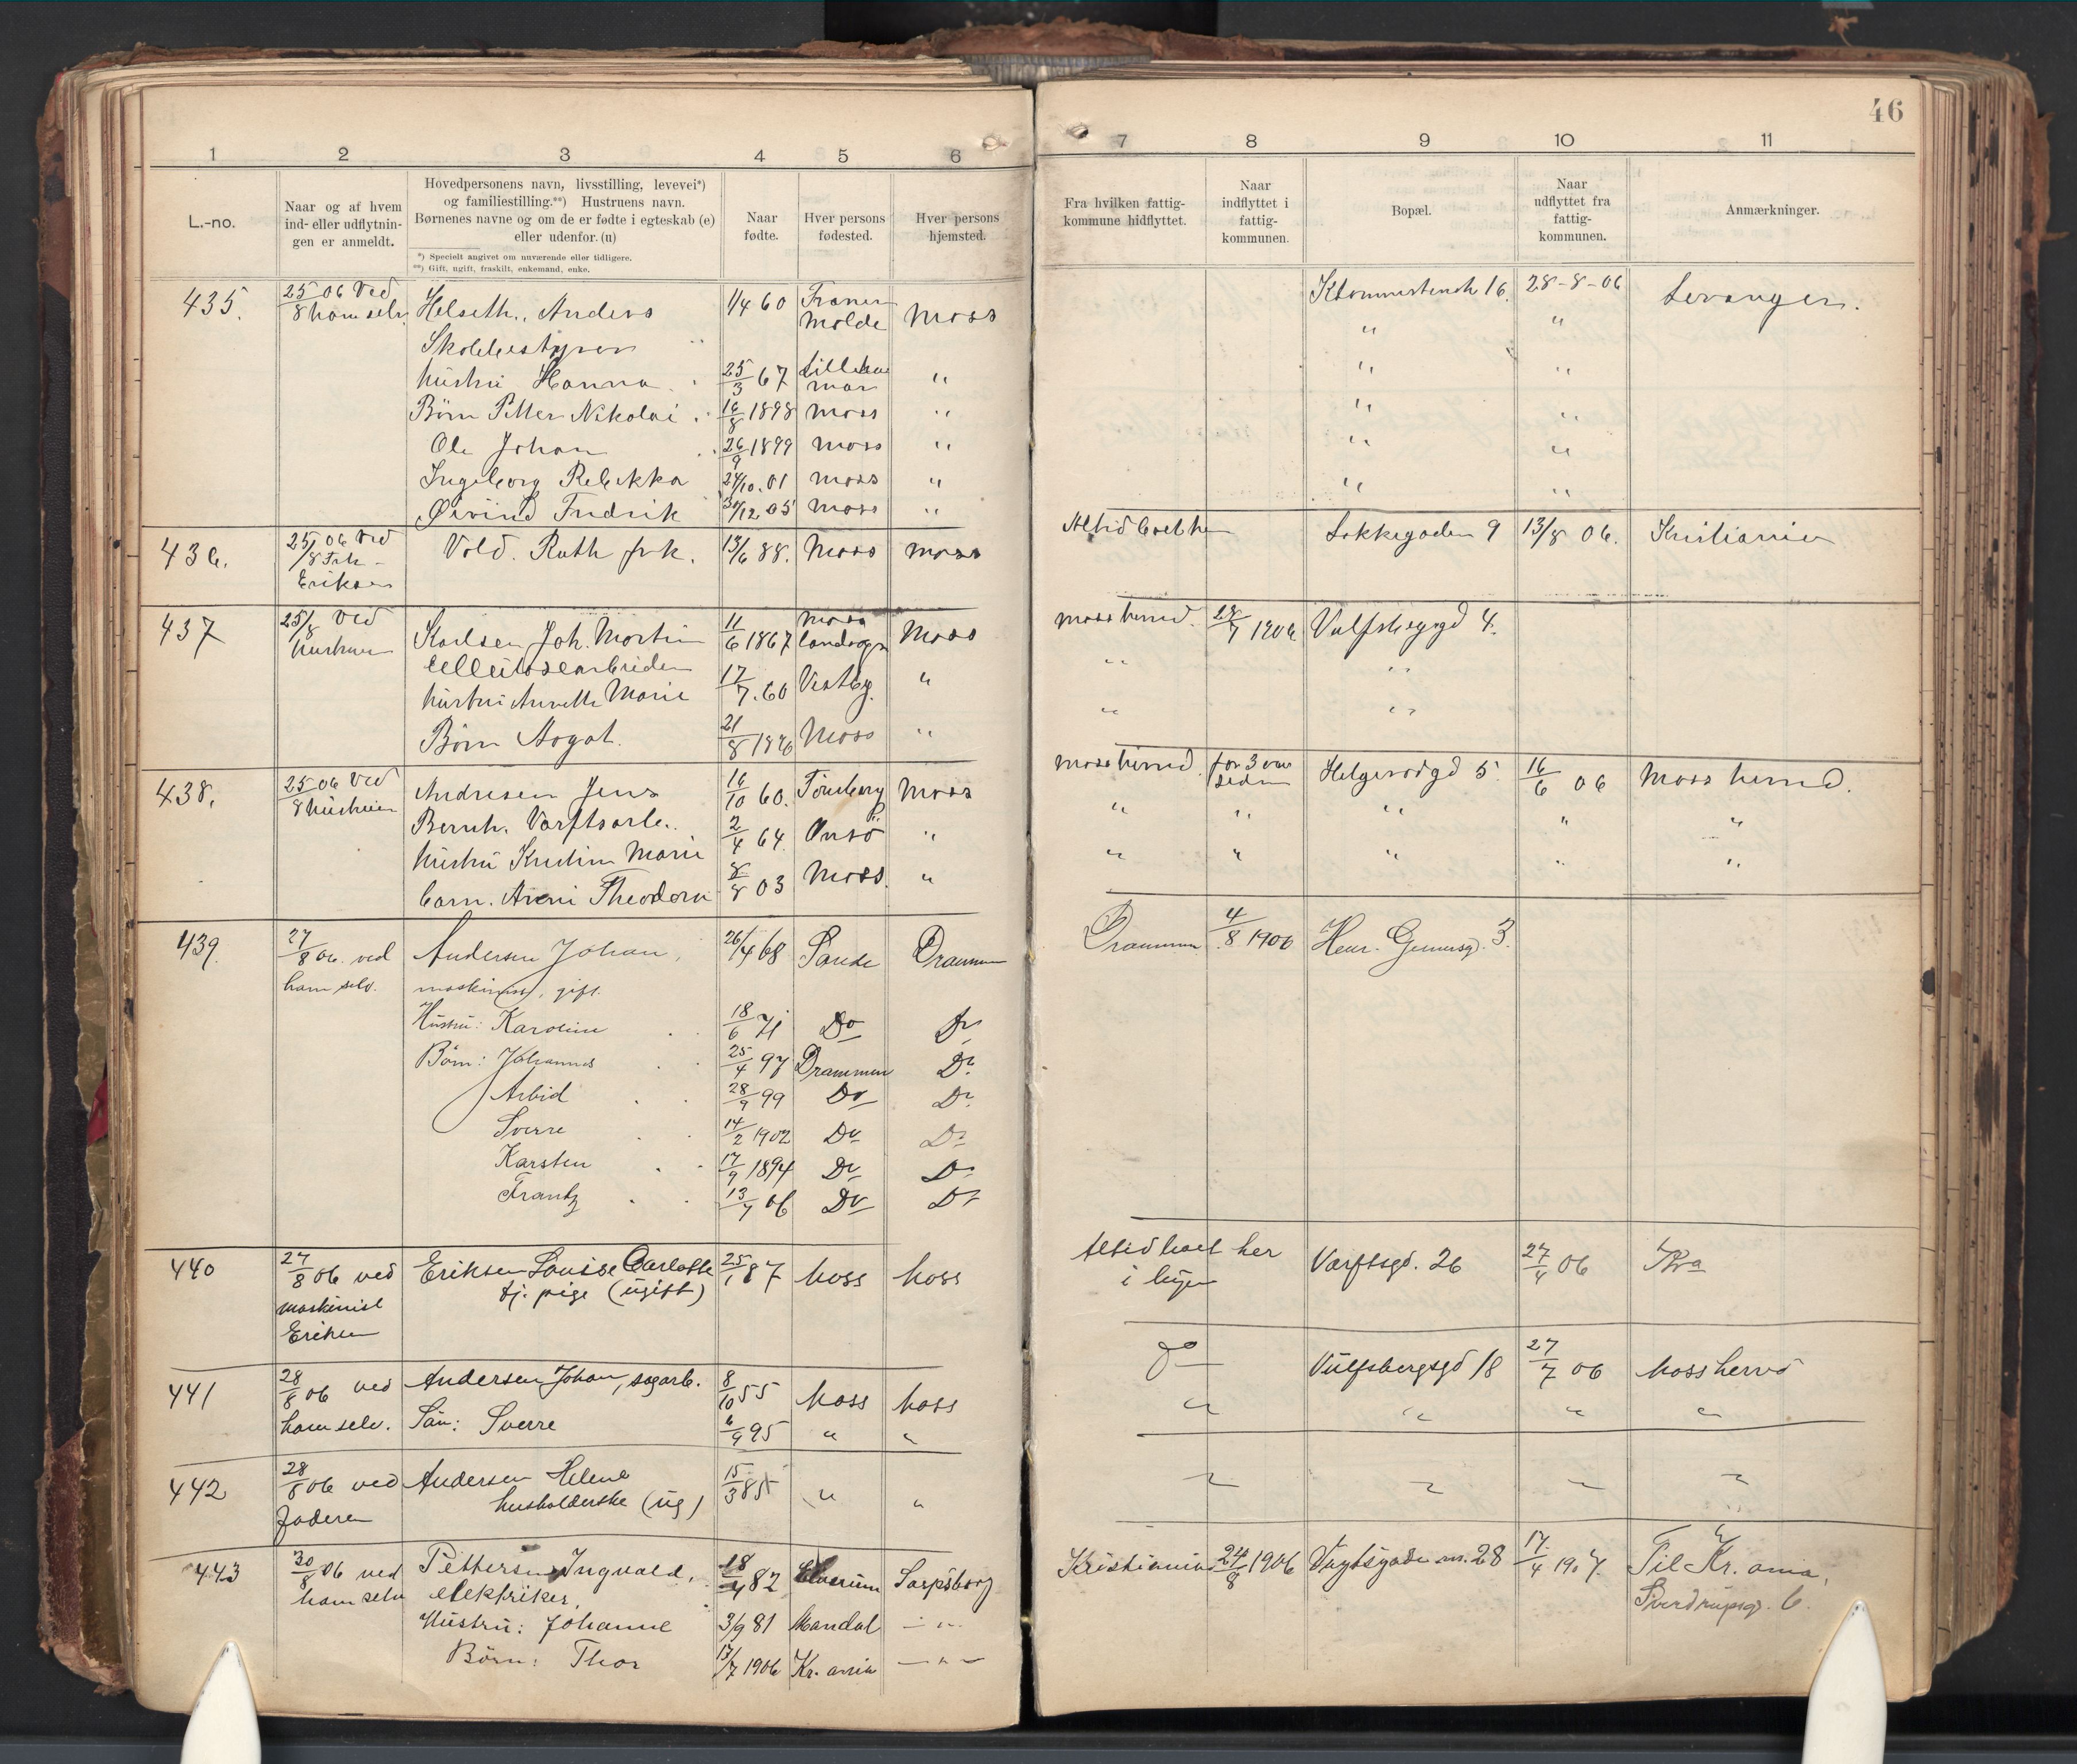 46
1 2 3 4 5 6 7 8 9 10 11
L.-no.
Naar og af hvem
ind- eller udflytnin-
gen er anmeldt.
Hovedpersonens navn, livsstilling, levevei*)
og familiestilling.**) Hustruens navn.
Børnenes navne og om de er fødte i egteskab (e)
eller udenfor. (u)
*) Specielt angivet om nuværende eller tidligere.
**) Gift, ugift, fraskilt, enkemand, enke.
Naar
fødte.
Hver persons
fødested.
Hver persons
hjemsted.
Fra hvilken fattig-
kommune hidflyttet.
Naar
indflyttet i
fattig-
kommunen.
Bopæl.
Naar
udflyttet fra
fattig-
kommunen.
Anmærkninger.
435. 25/8 06 ved Helseth, Anders 1/4 60 Molde Moss 16. 28-8-06 Levanger.
ham selv.
Skolebestyrer " "
hustru Hanna 25/3 67 Lilleham " " "
mar
Børn Petter Nikolai 16/8 1898 Moss " " "
Ole Johan 26/9 1899 Moss " " "
Ingeborg Rebekka 24/10 01 Moss " " "
Øivind Fredrik 30/12 05 Moss "
436. 25/8 06 ved Vold. Ruth frk. 13/6 88. Moss Moss Altid boet her 9 13/8 06. Kristiania
Frk
Eriksen
437 25/8 ved Karlsen Joh. Martin 11/6 1867 Moss landsogn Moss Moss herred. 1906 4.
husherren
Cellulosearbeider " "
hustru Annette Marie 17/7. 60 Vestby " " "
Børn Aagot. 21/8 Moss "
438. 25/8 06 ved Andresen Jens 16/10 60. Tönsberg Moss Moss herred for 3 aar siden Helgerødgd 5. 16/6 06 Moss herred.
husherren
Bernh. Værftsarb. " " " " "
hustru Kristine Marie 2/4 64 Onsö " " " " " "
barn. Theodora 8/8 03 Moss. "
439. 27/8 06. ved Andersen Johan, 26/4 68 Sande Drammen Drammen 4/8 1906 Henr. Gernersgd. 3.
ham selv. maskinist, gift.
Hustru: Karoline 18/6 71 Do Do
Børn: Johannes 25/4 97 Drammen Do
Arvid 28/9 99 Do Do
Sverre 14/2 1902 Do Do
Karsten 17/9 1894 Do Do
Frantz 13/7 06 Do Do
440 27/8 06 ved Eriksen Louise Carlotte 25/1 87 Moss Moss Altid boet her Værftsgd. 26 27/4 06 Kra
maskinist tj. pige (ugift) i byen
Eriksen
441 28/8 06 ved Andersen Johan, sagarb. 8/10 55 Moss Moss Do Vulfsbergsgd 18 27/7 06 Moss herred
ham selv. Søn: Sverre 6/9 95 " " " " " "
442 28/8 06 ved Andersen Helene 15/3 85 " " " " " "
faderen husholderske (ug)
443 30/8 06 ved Pettersen Ingvald, 18/4 82 Elverum Sarpsborg Kristiania 24/8 1906 Vogtsgade nr. 28 17/4 1907. Til Kr. ania,
ham selv elektriker, Sverdrupsgd. 6.
Hustru: Johanne 3/9 81 Mandal - " -
Børn: Thor 13/7 1906 Kr. ania - " -